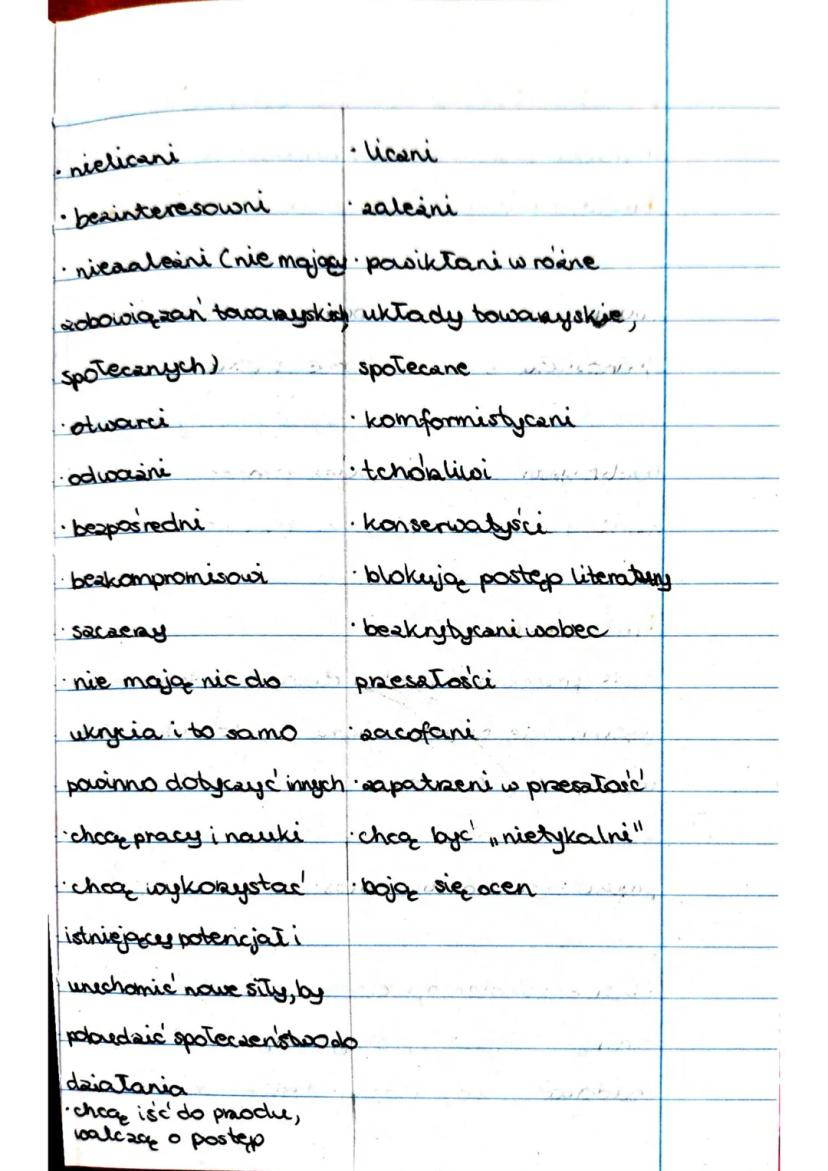 · nieliczni
· bezinteresowni
· niezależni (nie mający
zobowiązań towarzyskich
społecznych)
· otwarci
· odważni
· bezpośredni
· bezkompromisowi
· szczerzy
· nie mają nic do
ukrycia i to samo
powinno dotyczyć innych
· chcą pracy i nauki
· chcą wykorzystać
istniejący potencjał i
uruchomić nowe siły, by
pobudzić społeczeństwo do
działania
· chcą iść do przodu,
walczą o postęp
· liczni
· zależni
· powikłani w różne
układy towarzyskie,
społeczne
· komformistyczni
· tchórzliwi
· konserwatyści
· blokują postęp literatury
· bezkrytyczni wobec
przeszłości
· zacofani
· zapatrzeni w przeszłość
· chcą być „nietykalni"
· boją się ocen